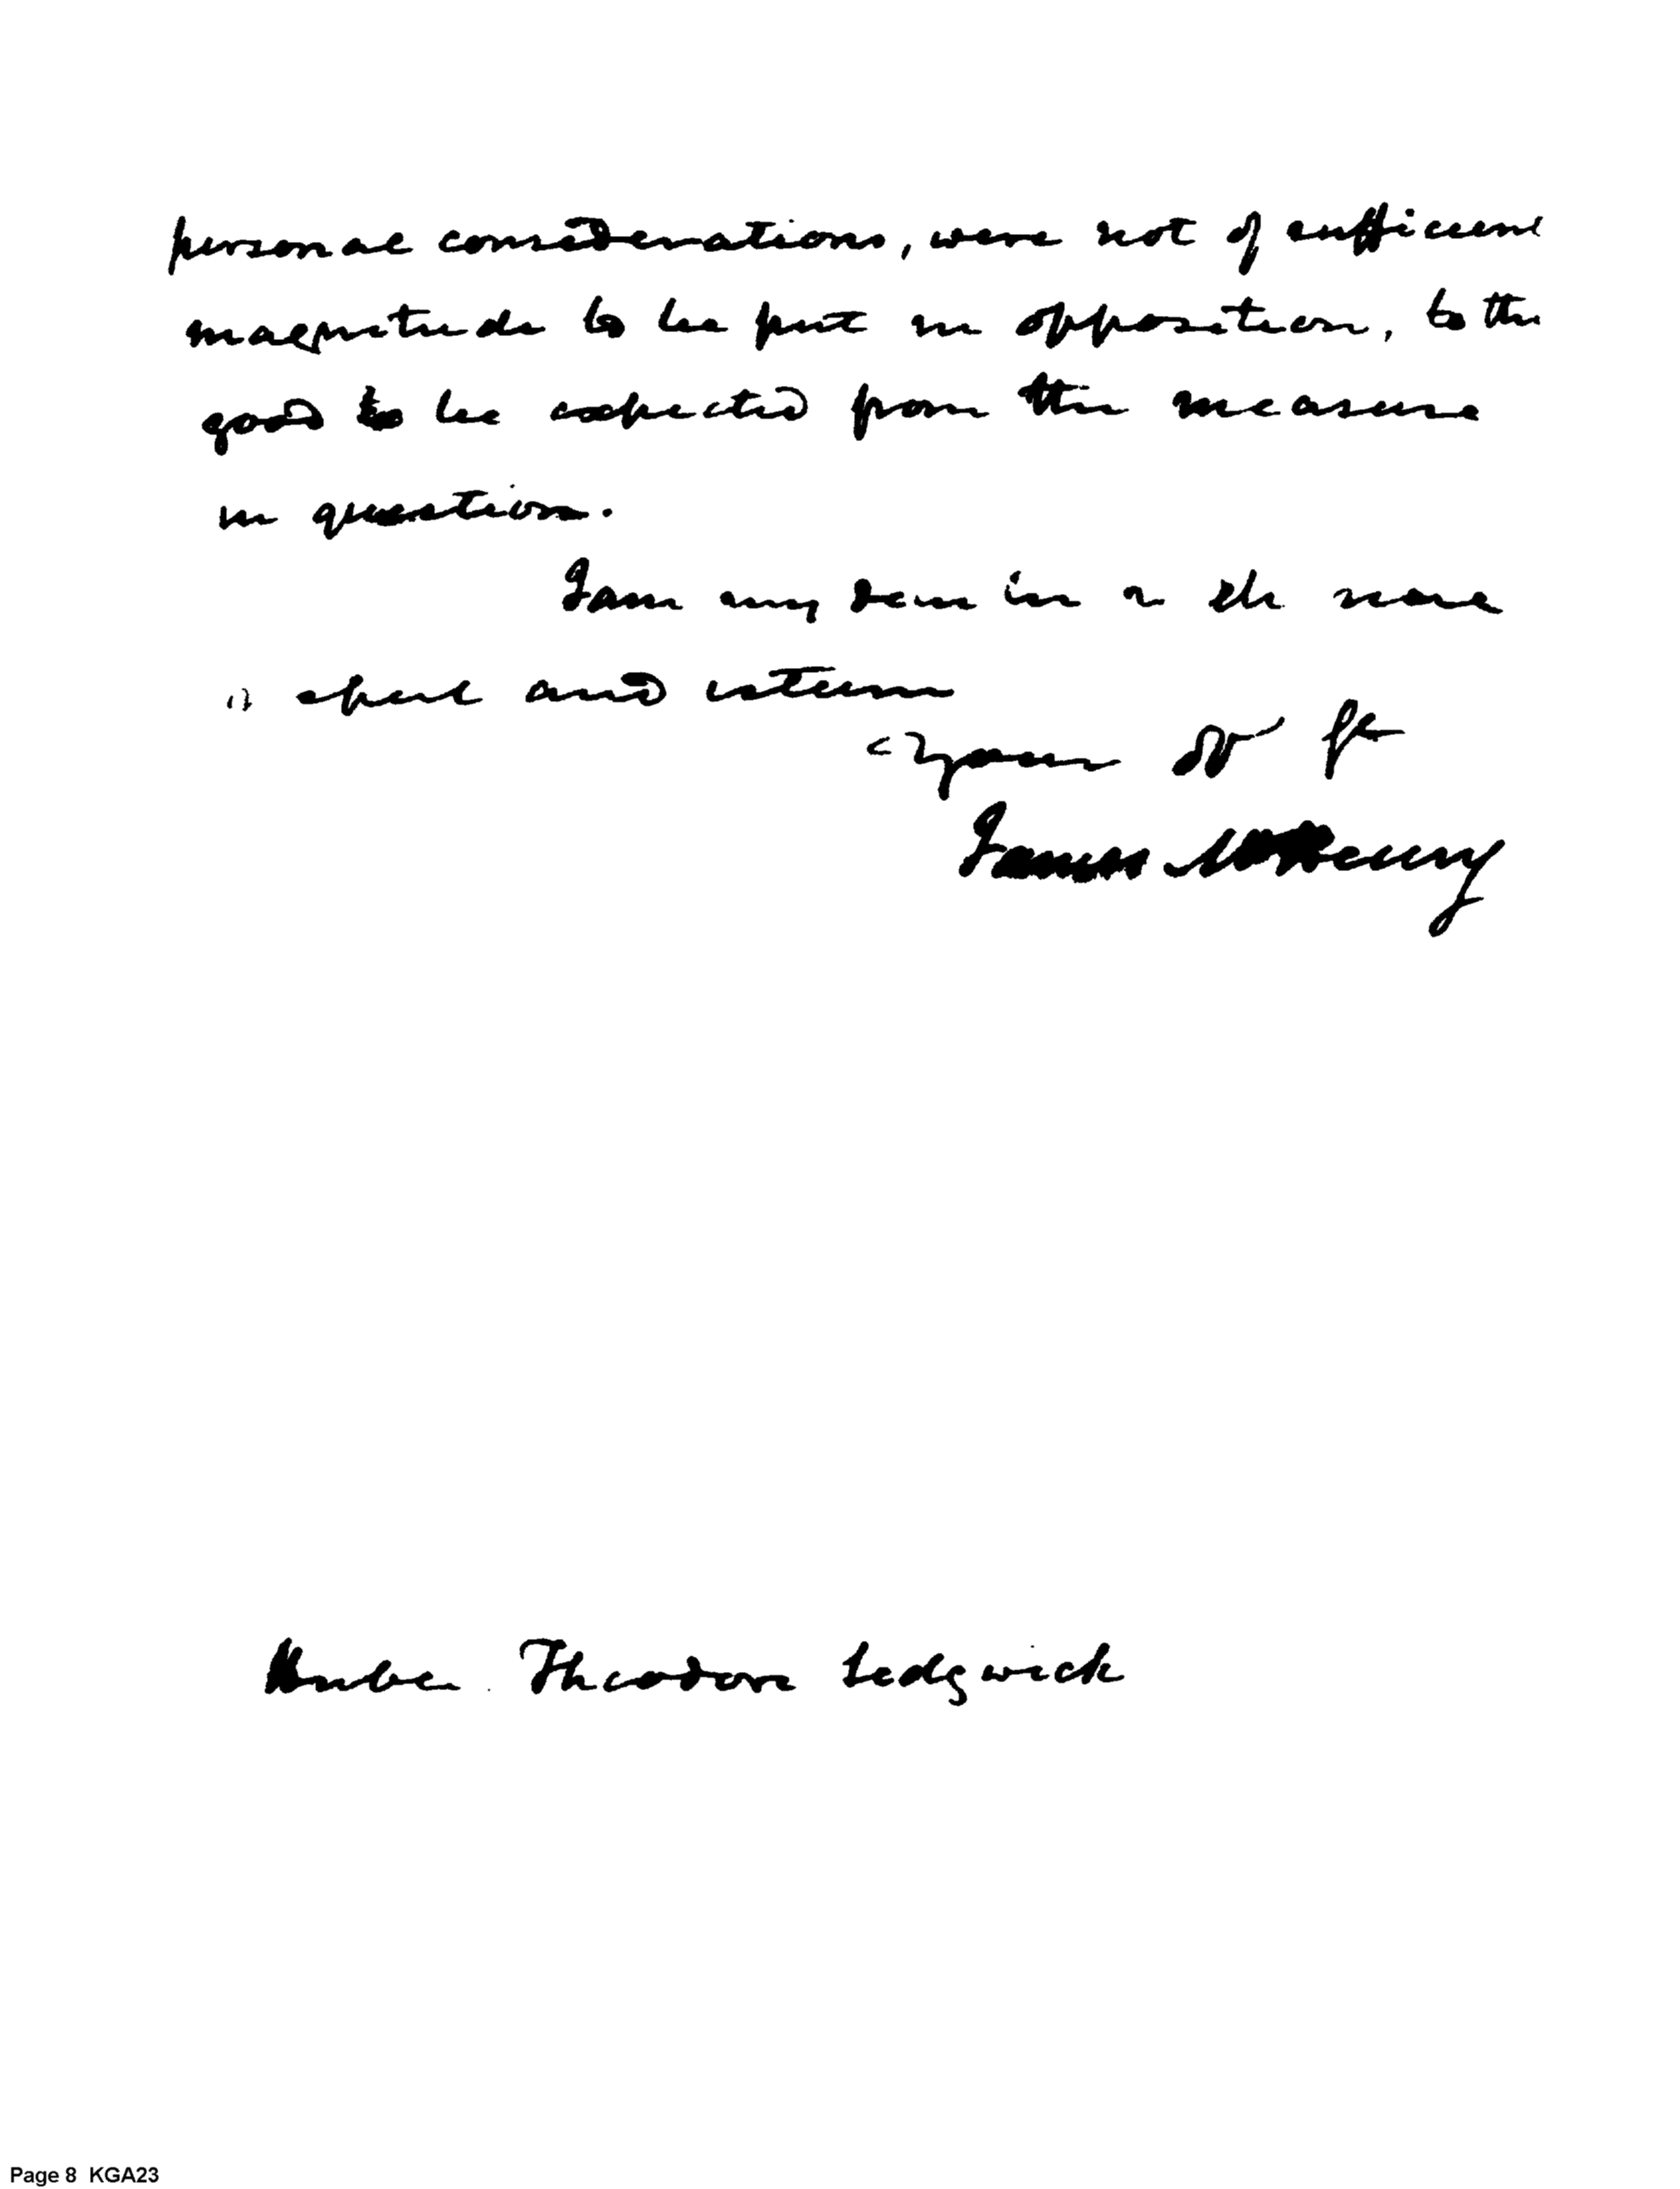 personal considerations, were not of sufficient
magnitude to be put in opposition, to the
good to be expected from the measure
in question.
I am my dear sir with the more
respect and esteem
yours
James McHenry
Theodore Sedgwick
Page 8 KGA23